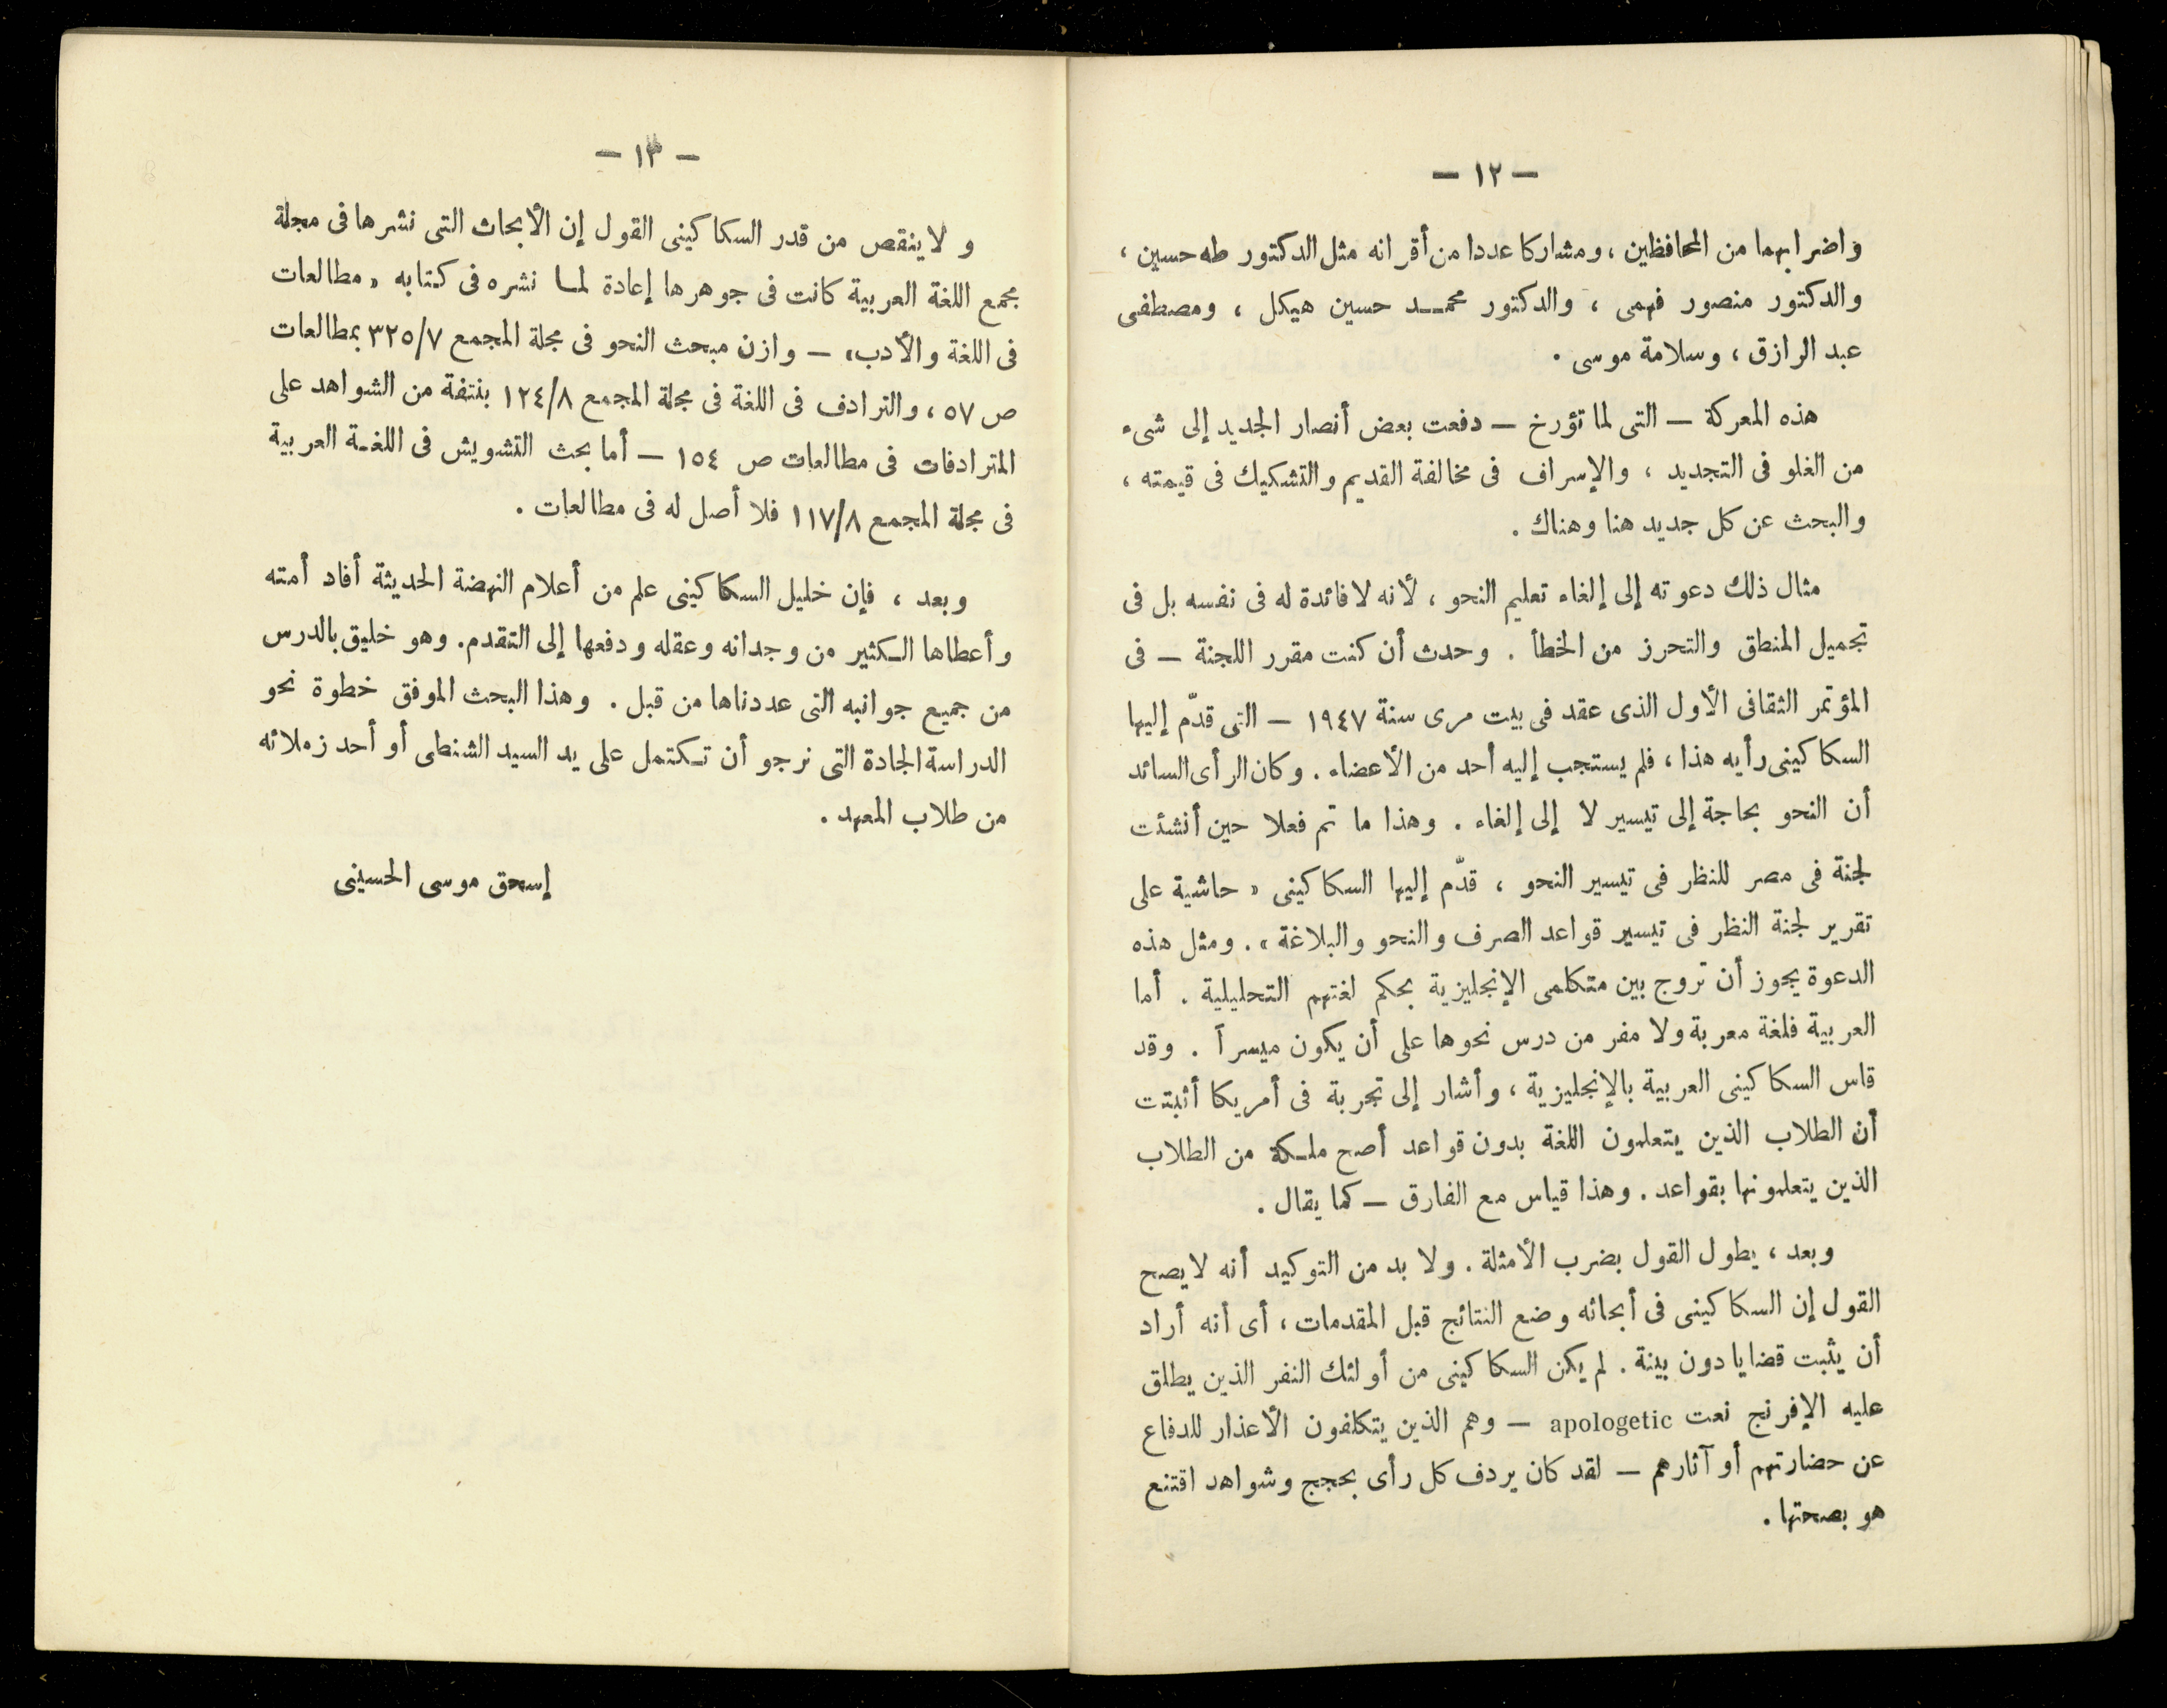 — ١٢ —
واضرابهما من المحافظين ، ومشاركا عددا من أقرانه مثل الدكتور طه حسين ،
والدكتور منصور فهمى ، والدكتور محمـــد حسين هيكل ، ومصطفى
عبد الرازق ، وسلامة موسى .
هذه المعركة — التى لما تؤرخ — دفعت بعض أنصار الجديد إلى شىء
من الغلو فى التجديد ، والإسراف فى مخالفة القديم والتشكيك فى قيمته ،
والبحث عن كل جديد هنا وهناك .
مثال ذلك دعوته إلى إلغاء تعليم النحو ، لأنه لا فائدة له فى نفسه بل فى
تجميل المنطق والتحرز من الخطأ . وحدث أن كنت مقرر اللجنة — فى
المؤتمر الثقافى الأول الذى عقد فى بيت مرى سنة ١٩٤٧ — التى قدّم إليها
السكاكينى رأيه هذا ، فلم يستجب إليه أحد من الأعضاء . وكان الرأى السائد
أن النحو بحاجة إلى تيسير لا إلى إلغاء . وهذا ما تم فعلا حين أنشئت
لجنة فى مصر للنظر فى تيسير النحو ، قدّم إليها السكاكينى « حاشية على
تقرير لجنة النظر فى تيسير قواعد الصرف والنحو والبلاغة » . ومثل هذه
الدعوة يجوز أن تروج بين متكلمى الإنجليزية بحكم لغتهم التحليلية . أما
العربية فلغة معربة ولا مفر من درس نحوها على أن يكون ميسرآ . وقد
قاس السكاكينى العربية بالإنجليزية ، وأشار إلى تجربة فى أمريكا أثبتت
أن الطلاب الذين يتعلمون اللغة بدون قواعد أصح ملـكة من الطلاب
الذين يتعلمونها بقواعد . وهذا قياس مع الفارق — كما يقال .
وبعد ، يطول القول بضرب الأمثلة . ولا بد من التوكيد أنه لايصح
القول إن السكاكينى فى أبحاثه وضع النتائج قبل المقدمات ، أى أنه أراد
أن يثبت قضايا دون بينة . لم يكن السكاكينى من أولئك النفر الذين يطلق
عليه الإفرنج نعت apologetic — وهم الذين يتكلفون الأعذار للدفاع
عن حضارتهم أو آثارهم — لقد كان يردف كل رأى بحجج وشواهد اقتنع
هو بصحتها .
— ١٣ —
ولاينقص من قدر السكاكينى القول إن الأبحاث التى نشرها فى مجلة
مجمع اللغة العربية كانت فى جوهرها إعادة لمـا نشره فى كتابه « مطالعات
فى اللغة والأدب » — وازن مبحث النحو فى مجلة المجمع ٣٢٥/٧ بمطالعات
ص ٥٧ ، والترادف فى اللغة فى مجلة المجمع ١٢٤/٨ بنتفة من الشواهد على
المترادفات فى مطالعات ص ١٥٤ — أما بحث التشويش فى اللغـة العربية
فى مجلة المجمع ١١٧/٨ فلا أصل له فى مطالعات .
وبعد ، فإن خليل السكاكينى علم من أعلام النهضة الحديثة أفاد أمته
وأعطاها الـكثير من وجدانه وعقله ودفعها إلى التقدم . وهو خليق بالدرس
من جميع جوانبه التى عددناها من قبل . وهذا البحث الموفق خطوة نحو
الدراسة الجادة التى نرجو أن تـكتمل على يد السيد الشنطى أو أحد زملائه
من طلاب المعهد .
إسحق موسى الحسينى